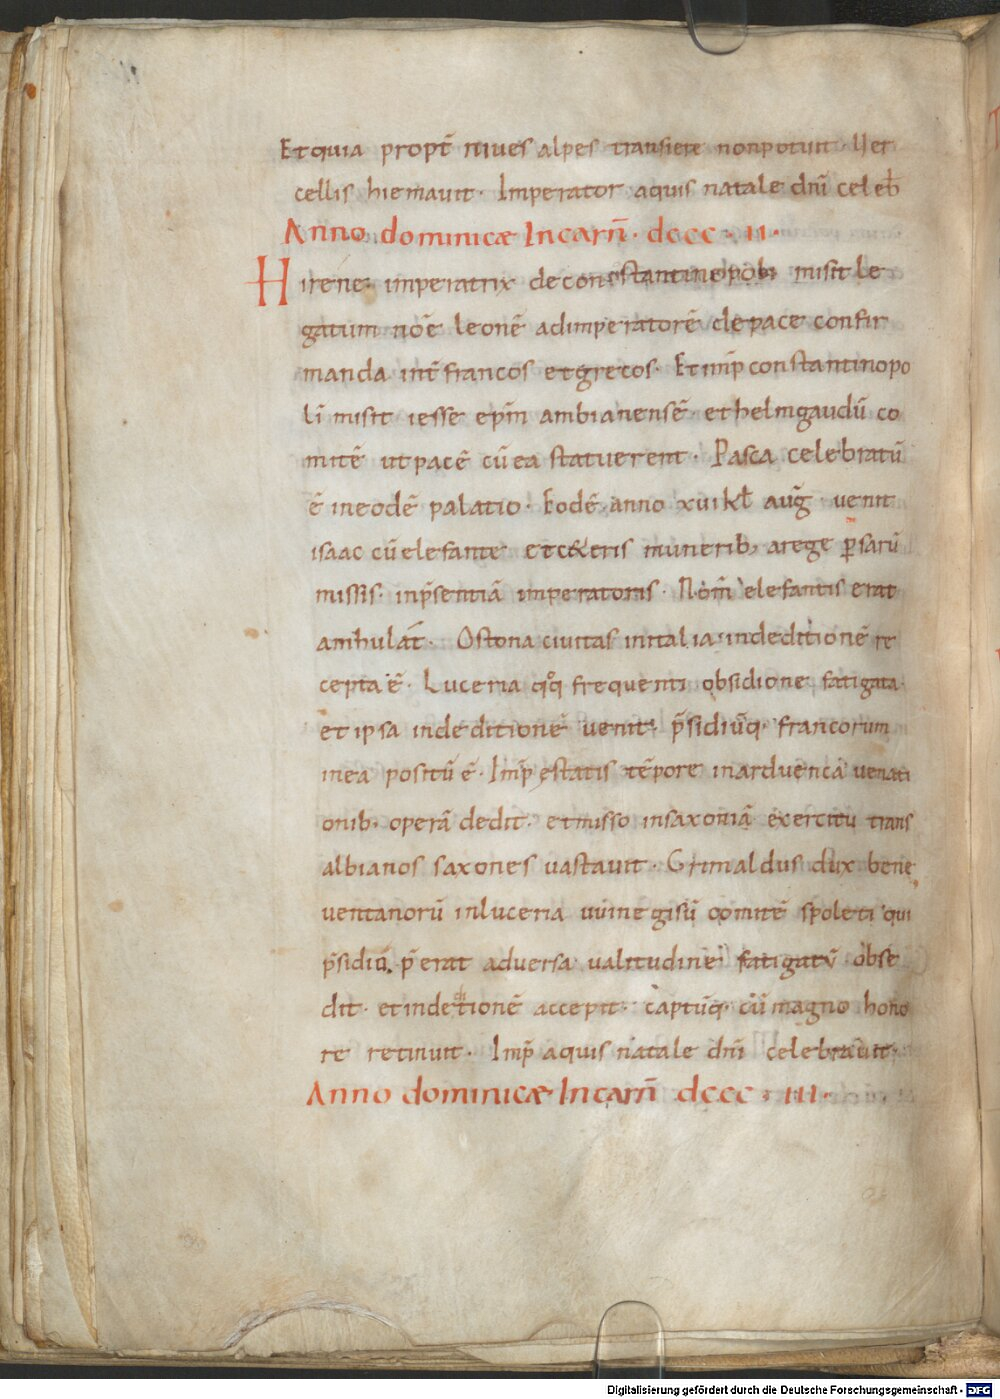 Et quia propt̄ nives alpes transiere non potuit. Ver
cellis hiemavit. Imperator aquis natale dn̄i celeb̄
Anno dominicæ Incarn̄. dccc. II.
Hirene imperatrix de constantinopoli misit le
gatum noē leonē ad imperatorē de pace confir
manda int̄ francos et grecos. Et imp̄ constantinopo
li misit iesse ep̄m ambianensē et helmgaudū co
mitē ut pacē cū ea statuerent. Pasca celebratū
ē in eodē palatio. Eodē anno xvi kł auḡ venit
isaac cū elefante et cæteris munerib; a rege ꝑsarū
missis in p̄sentiā imperatoris. Nom̄ elefantis erat
ambulat̄. Ostona civitas in italia in deditionē re
cepta ē. Luceria qͦq frequenti obsidione fatigata
et ipsa in deditionē venit. p̄sidiūq. francorum
in ea positū ē. Imp̄ ęstatis tēpore in arduenca venati
onib. operā dedit. et misso in saxoniā exercitu trans
albianos saxones vastavit. Grimaldus dux bene
ventanorū in luceria vuinegisū comitē spoleti qui
p̄sidiū p̄erat adversa valitudine fatigatū obse
dit. et in detionē accepit. captūq. cū magno hono
re retinuit. Imp̄ aquis natale dn̄i celebravit.
Anno dominicæ Incarn̄ dccc. III.
Digitalisierung gefördert durch die Deutsche Forschungsgemeinschaft - DFG